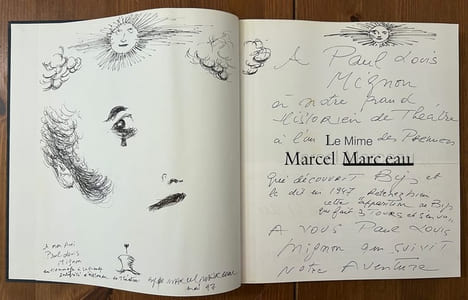 à mon ami
Paul Louis
Mignon
en hommage
mai 97
A Paul Louis
Mignon
à notre grand
Historien de Théâtre
à l'un des Premiers
Le Mime
Marcel Marceau
qui découvrit Bip et
le dit en 1947
cette apparition de Bip
qui fait 3 TOURS et s'en va
A VOUS Paul Louis
Mignon qui suivit
Notre Aventure